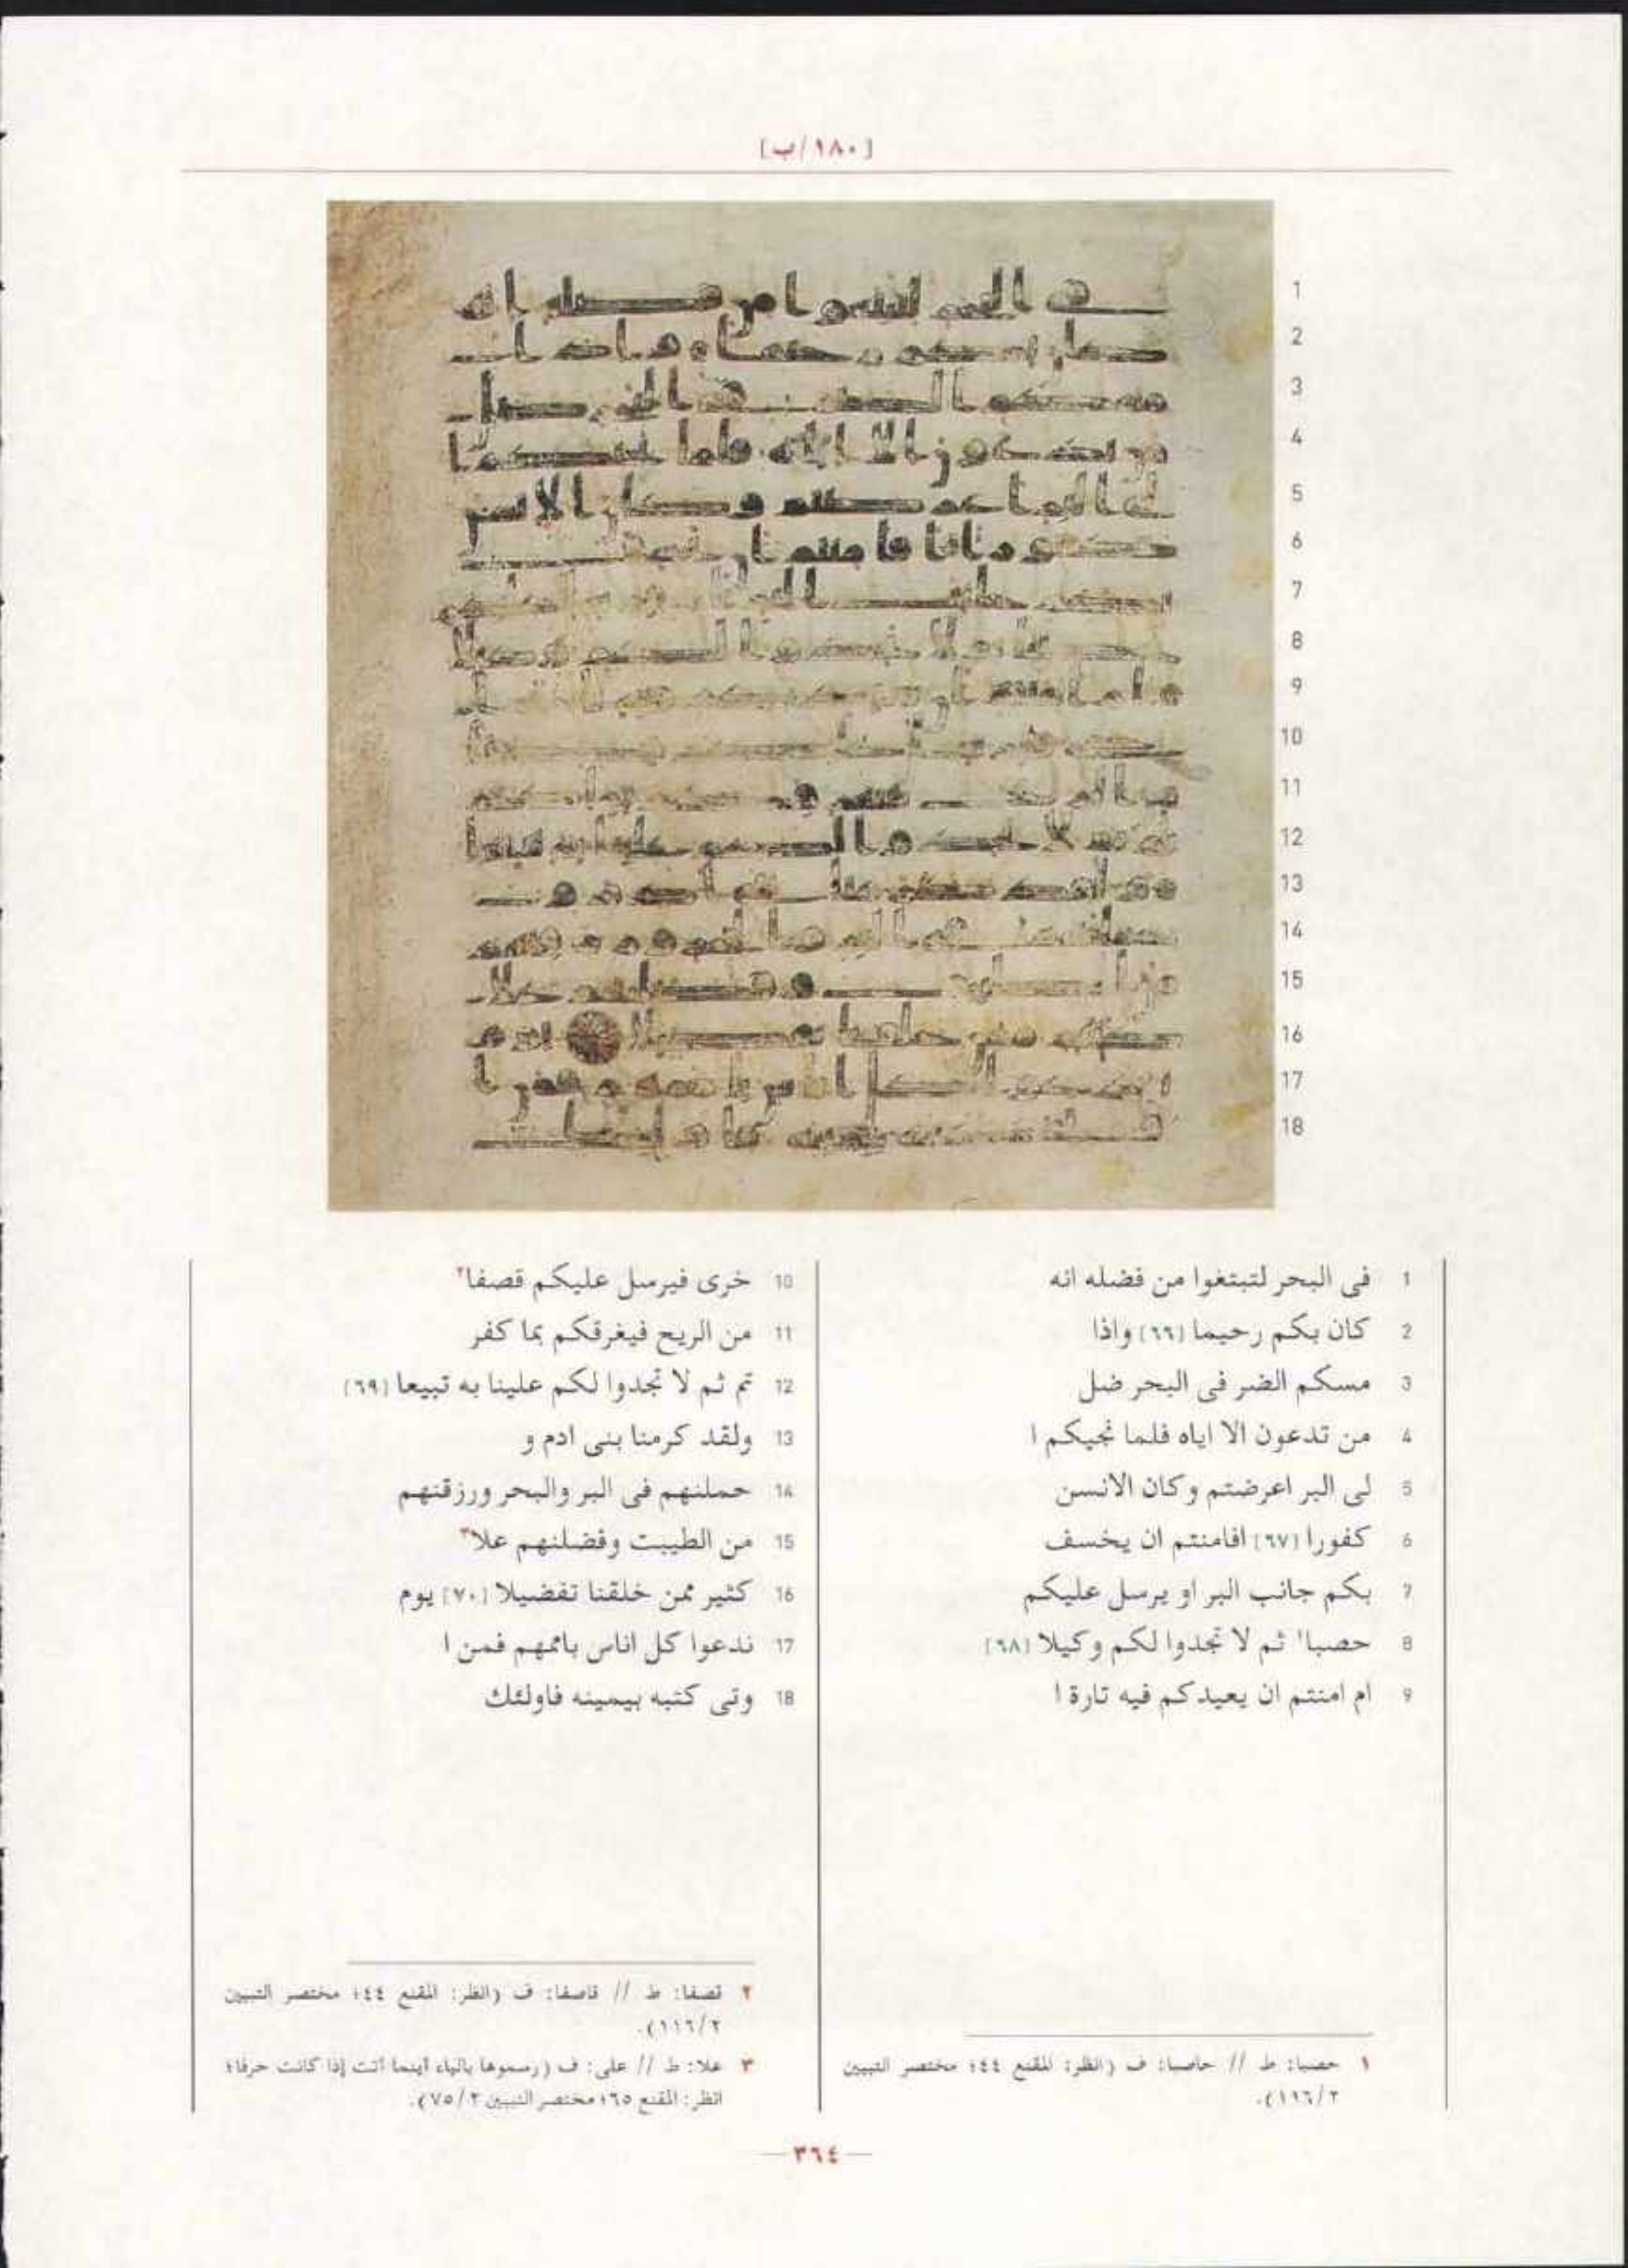 [١٨٠/ب]
1 فى البحر لتبتغوا من فضله انه
2 كان بكم رحيما [٦٦] واذا
3 مسكم الضر فى البحر ضل
4 من تدعون الا اياه فلما نجيكم ا
5 لى البر اعرضتم وكان الانسن
6 كفورا [٦٧] افامنتم ان يخسف
7 بكم جانب البر او يرسل عليكم
8 حصبا١ ثم لا تجدوا لكم وكيلا [٦٨]
9 ام امنتم ان يعيدكم فيه تارة ا
10 خرى فيرسل عليكم قصفا٢
11 من الريح فيغرقكم بما كفر
12 تم ثم لا تجدوا لكم علينا به تبيعا [٦٩]
13 ولقد كرمنا بنى ادم و
14 حملنهم فى البر والبحر ورزقنهم
15 من الطيبت وفضلنهم علا٣
16 كثير ممن خلقنا تفضيلا [٧٠] يوم
17 ندعوا كل اناس باممهم فمن ا
18 وتى كتبه بيمينه فاولئك
١ حصبا: ط // حاصبا: ف (انظر: المقنع ٤٤؛ مختصر التبيين
١١٦/٢).
٢ قصفا: ط // قاصفا: ف (انظر: المقنع ٤٤؛ مختصر التبيين
١١٦/٢).
٣ علا: ط // على: ف (رسموها بالياء أينما أتت إذا كانت حرفا؛
انظر: المقنع ٦٥؛ مختصر التبيين ٧٥/٢).
٣٦٤